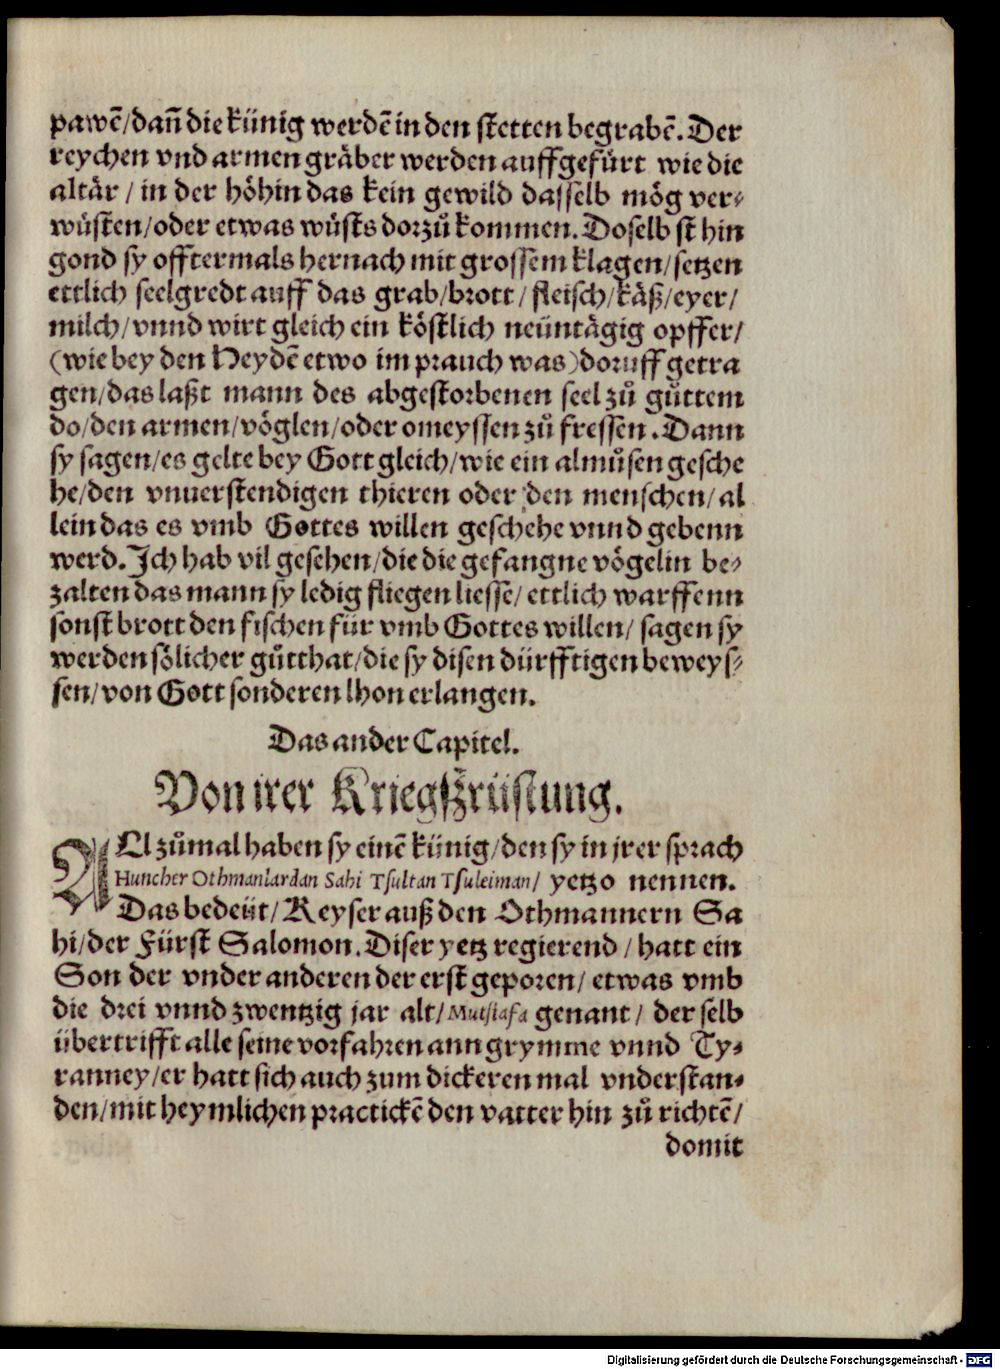 pawē/dañ die künig werdē in den stetten begrabē. Der
reychen vnd armen gräber werden auffgefürt wie die
altär / in der höhin das kein gewild dasselb mög ver⸗
wüsten/oder etwas wüsts dorzů kommen. Doselb st hin
gond sy offtermals hernach mit grossem klagen/setzen
ettlich seelgredt auff das grab/brott / fleisch/käß/eyer/
milch/vnnd wirt gleich ein köstlich neüntägig opffer/
(wie bey den Heydē etwo im prauch was)doruff getra
gen/das laßt mann des abgestorbenen seel zů gůttem
do/den armen/vöglen/oder omeyssen zů fressen. Dann
sy sagen/es gelte bey Gott gleich/wie ein almůsen gesche
he/den vnuerstendigen thieren oder den menschen/al
lein das es vmb Gottes willen geschehe vnnd gebenn
werd. Ich hab vil gesehen/die die gefangne vögelin be⸗
zalten das mann sy ledig fliegen liesse/ ettlich warffenn
sonst brott den fischen für vmb Gottes willen/ sagen sy
werden sölicher gůtthat/die sy disen dürfftigen beweys⸗
sen/von Gott sonderen lhon erlangen.
Das ander Capitel.
Von irer Kriegßrüstung.
ALl zůmal haben sy einē künig/den sy in jrer sprach
Huncher Othmanlardan Sahi Tsultan Tsuleiman/ yetzo nennen.
Das bedeüt/Keyser auß den Othmannern Sa
hi/der Fürst Salomon. Diser yetz regierend / hatt ein
Son der vnder anderen der erst geporen/ etwas vmb
die drei vnnd zwentzig jar alt/Mutstafa genant/ der selb
übertrifft alle seine vorfahren ann grymme vnnd Ty⸗
ranney/er hatt sich auch zum dickeren mal vnderstan⸗
den/mit heymlichen practickē den vatter hin zů richtē/
domit
Digitalisierung gefördert durch die Deutsche Forschungsgemeinschaft - DFG